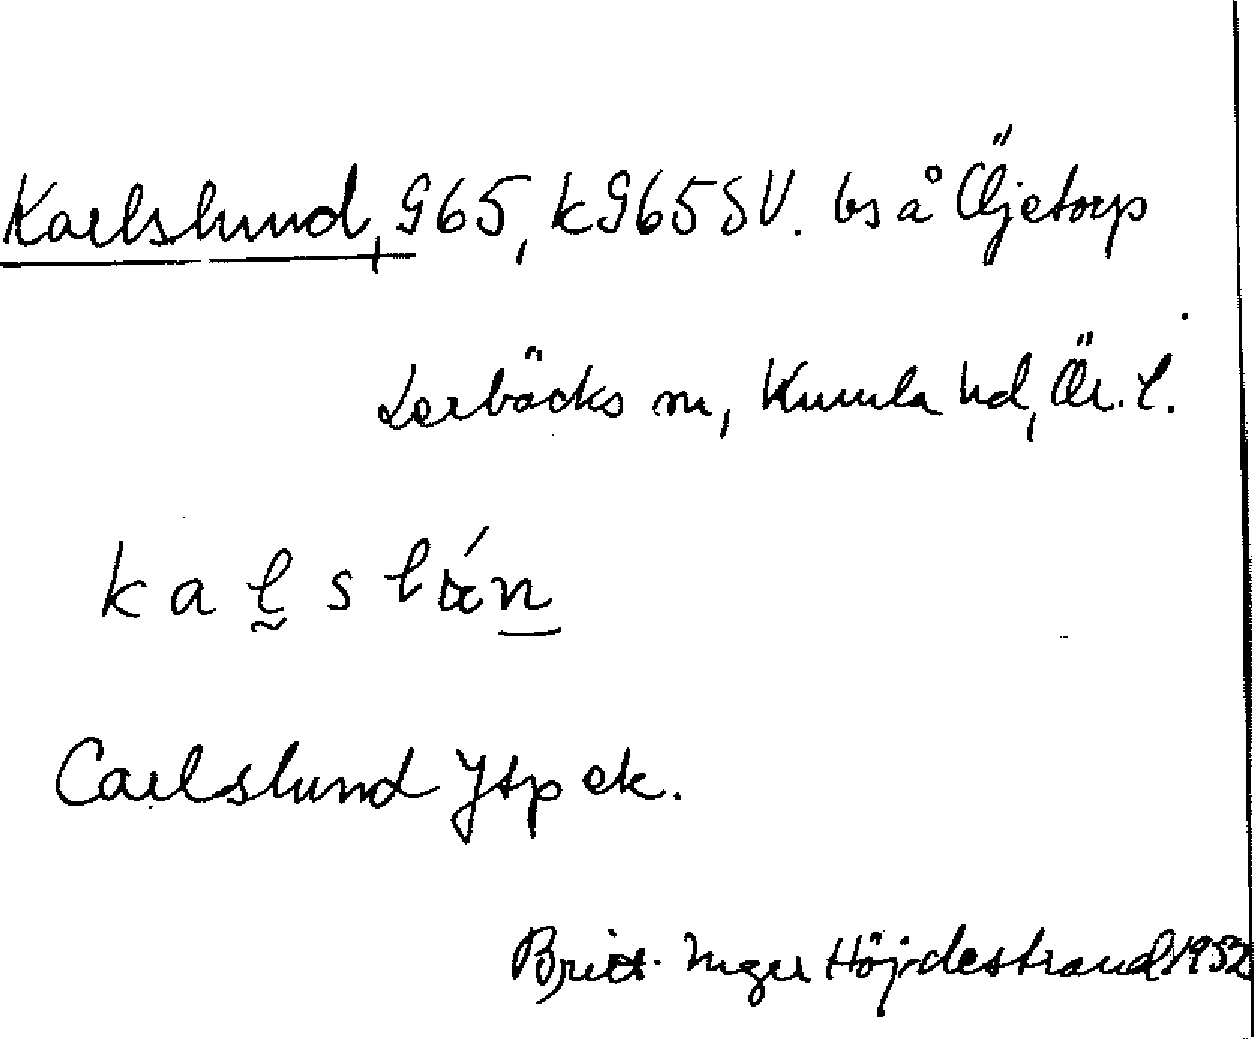 Karlslund, 965, k965SV. bs å Öjetorp
Lerbäcks sn, Kumla hd, Ör. l.
kalslán
Carlslund Jtp ek.
Britt-Inger Höjdestrand 1952